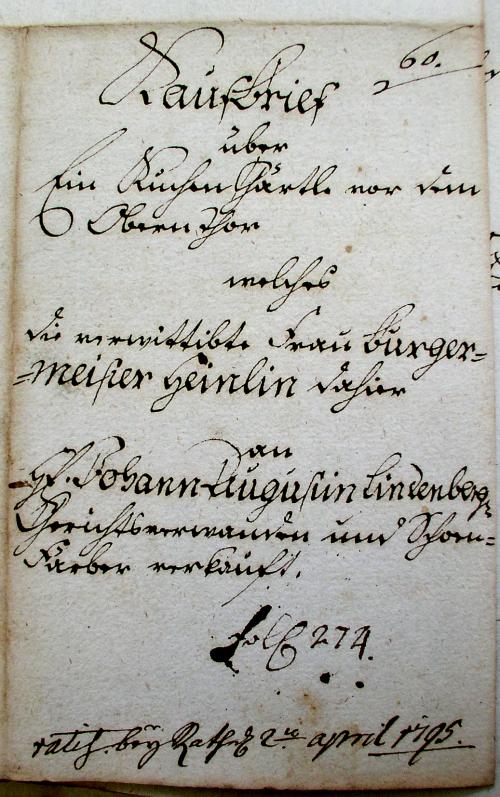 60.
Kaufbrief
über
Ein Kuchen Gärtle vor dem
Obern Thor
welches
die verwittibte Frau Burger=
=meister Heinlin dahier
an
Hf. Johann Augustin Lindenberg,
Gerichtsverwanden und Schoen=
Färber verkauft.
Fol. 274.
ratif. bey Rath d 2te april 1795.